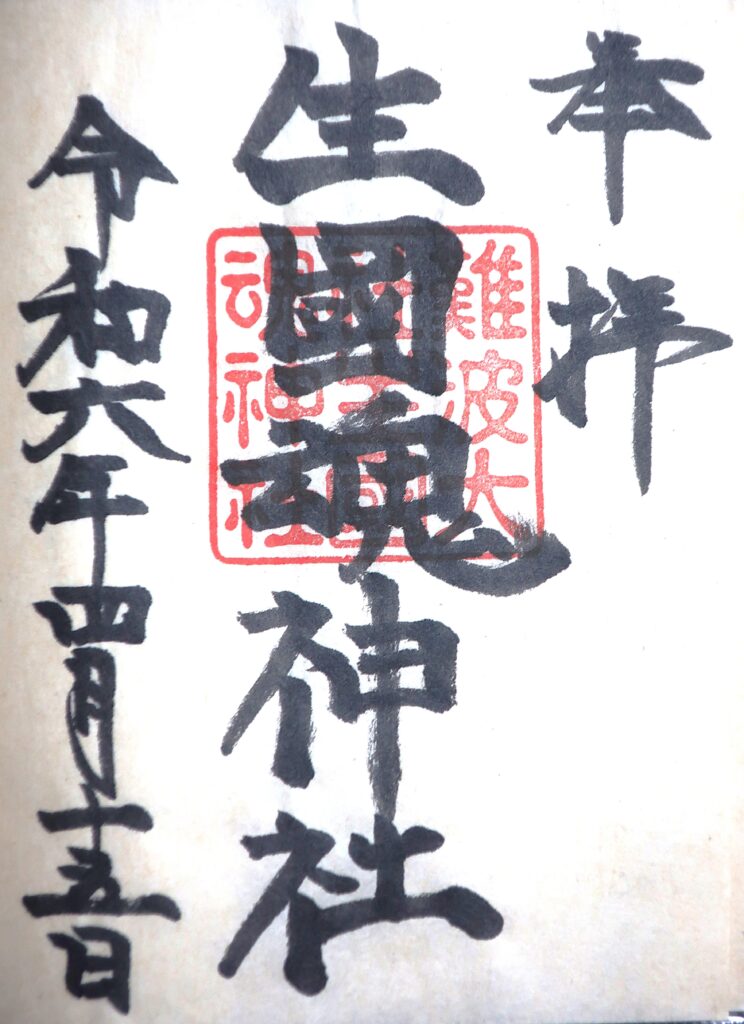 奉拝
生國魂神社
令和六年四月十五日
難波大
社生國
魂神社